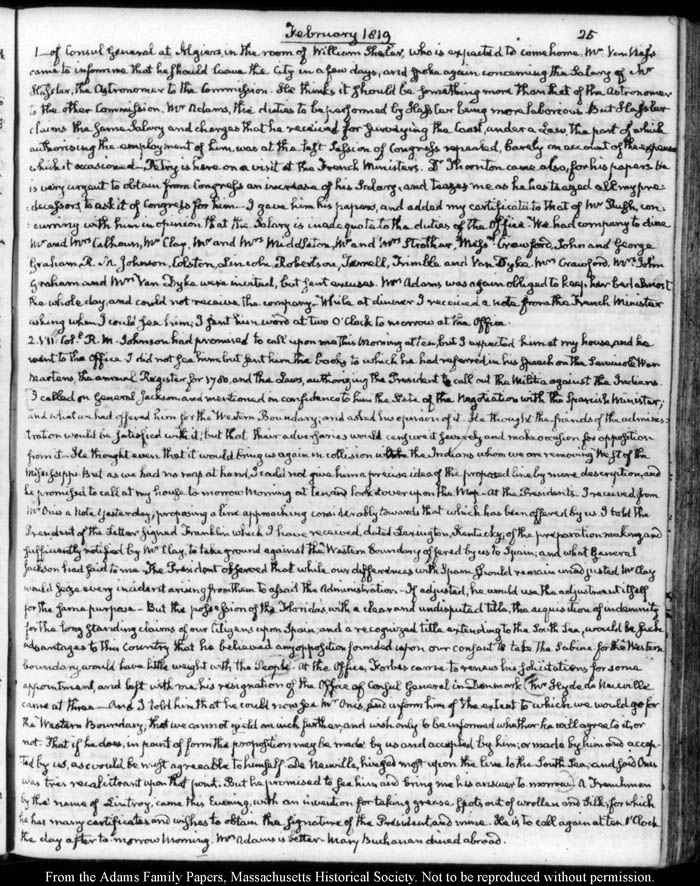 February 1819 25
1— of Consul General at Algiers, in the room of William Shaler, who is expected to come home. Mr Van Ness
came to inform me that he should leave the City in a few days, and spoke again concerning the Salary of Mr
Hassler, the Astronomer to the Commission. He thinks it should be something more than that of the Astronomer
to the other Commission, Mr Adams, the duties to be performed by Hassler being more laborious. But Hassler
claims the same Salary and charges that he received for Surveying the Coast, under a Law, the part of which
authorising the employment of him, was at the last Session of Congress repealed, barely on account of the expense
which it occasioned— Petry is here on a visit at the French Ministers. Dr Thornton came also, for his papers. He
is very urgent to obtain from Congress an increase of his Salary, and teazes me as he has teazed all my pre-
decessors, to ask it of Congress for him— I gave him his papers, and added my certificate to that of Mr Rush, con-
curring with him in opinion that the Salary is inadequate to the duties of the Office. We had company to dine
Mr and Mrs Calhoun, Mr Clay, Mr and Mrs Middleton, Mr and Mrs Strother, Messrs Crawford, John and George
Graham, R. M. Johnson, Colston, Lincoln, Robertson, Terrell, Trimble and Van Dyke. Mrs Crawford, Mrs John
Graham and Mrs Van Dyke were invited, but sent excuses. Mrs Adams was again obliged to keep her bed almost
the whole day, and could not receive the company. While at dinner I received a note from the French Minister
asking when I could see him; I sent him word at two O'Clock to morrow at the Office.
2. VII. Coll. R. M. Johnson had promised to call upon me this Morning at ten, but I expected him at my house, and he
went to the Office. I did not see him; but sent him the books to which he had referred in his Speech on the Seminole War
Martens, the annual Register for 1780, and the Laws, authorizing the President to call out the Militia against the Indians.
I called on General Jackson and mentioned in confidence to him the State of the Negotiation with the Spanish Minister;
and what we had offered him for the Western Boundary; and asked his opinion of it. He thought the friends of the adminis-
tration would be satisfied with it; but that their adversaries would censure it severely and make occasion for opposition
from it— He thought even that it would bring us again in collision with the Indians whom we are removing West of the
Mississippi. But as we had no map at hand, I could not give him a precise idea of the proposed line by mere description, and
he promised to call at my house to morrow Morning at ten, and look it over upon the Map— At the Presidents. I received from
Mr Onis a Note yesterday, proposing a line approaching considerably towards that which has been offered by us. I told the
President of the Letter signed Franklin which I have received, dated Lexington, Kentucky; of the preparation making, and
sufficiently notified by Mr Clay, to take ground against the Western Boundary offered by us to Spain; and what General
Jackson had said to me. The President observed that while our differences with Spain should remain unadjusted, Mr Clay
would seize every incident arising from them to assail the Administration— If adjusted, he would use the adjustment itself
for the same purpose— But the possession of the Floridas, with a clear and undisputed title, the acquisition of indemnity
for the long standing claims of our Citizens upon Spain; and a recognized title extending to the South Sea, would be such
advantages to this Country that he believed any opposition founded upon our consent to take the Sabine for the Western
boundary, would have little weight with the People— At the Office, Forbes came to renew his solicitations for some
appointment, and left with me his resignation of the Office of Consul General in Denmark. Mr Hyde de Neuville
came at three— And I told him that he could now see Mr Onis, and inform him of the extent to which we would go for
the Western Boundary; that we cannot yield an inch further, and wish only to be informed whether he will agree to it, or
not. That if he does, in point of form the proposition may be made by us and accepted by him; or made by him and accep-
ted by us, as would be most agreeable to himself. De Neuville, hinged most upon the line to the South Sea; and said Onis
was très recalcitrant upon that point. But he promised to see him and bring me his answer to morrow. A Frenchman
by the name of Lintroy, came this Evening, with an invention for taking grease spots out of woollen and silk; for which
he has many certificates and wishes to obtain the signature of the President, and mine. He is to call again at ten O'Clock
the day after to-morrow Morning. Mrs Adams is better— Mary Buchanan dined abroad.
From the Adams Family Papers, Massachusetts Historical Society. Not to be reproduced without permission.